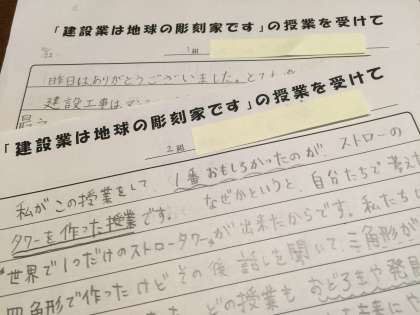 「建設業は地球の彫刻家です」の授業を受けて
1組
昨日はありがとうございました。と
建設工事は
「建設業は地球の彫刻家です」の授業を受けて
2組
私がこの授業をして、1番おもしろかったのが、ストローの
タワーを作った授業です。なぜかというと、自分たちで考えた
"世界で1つだけのストロータワー"が出来たからです。私たちは
四角形で作ったけどその後話しを聞いて、三角形が
どの授業もおどろきや発見